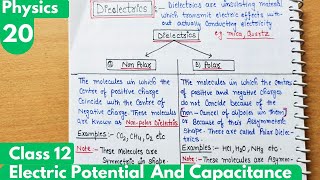 Physics
20
Dielectrics :- Dielectrics are insulating material
which transmit electric effects with-
actually Conducting electricity
eg mica, Quartz
Dielectrics
① Non Polar
The molecules in which the
Centre of positive charge
Coincide with the Centre of
Negative charge. These molecules
are known as Non-polar Dieletrics
Examples:- CO2, CH4, O2 etc
Note :- These Molecules are
Symmetric in shape
② Polar
The molecules in which the
Centres of positive and negative charges
do not Coincide because of the
non-Cancel of dipoles in them
or Because of their Assymmetric
Shape. There are called Polar Diele-
ctrics.
Examples :- HCl, H2O, NH3 etc.
Note:- These molecules are Assymm-
Class 12
Electric Potential And Capacitance